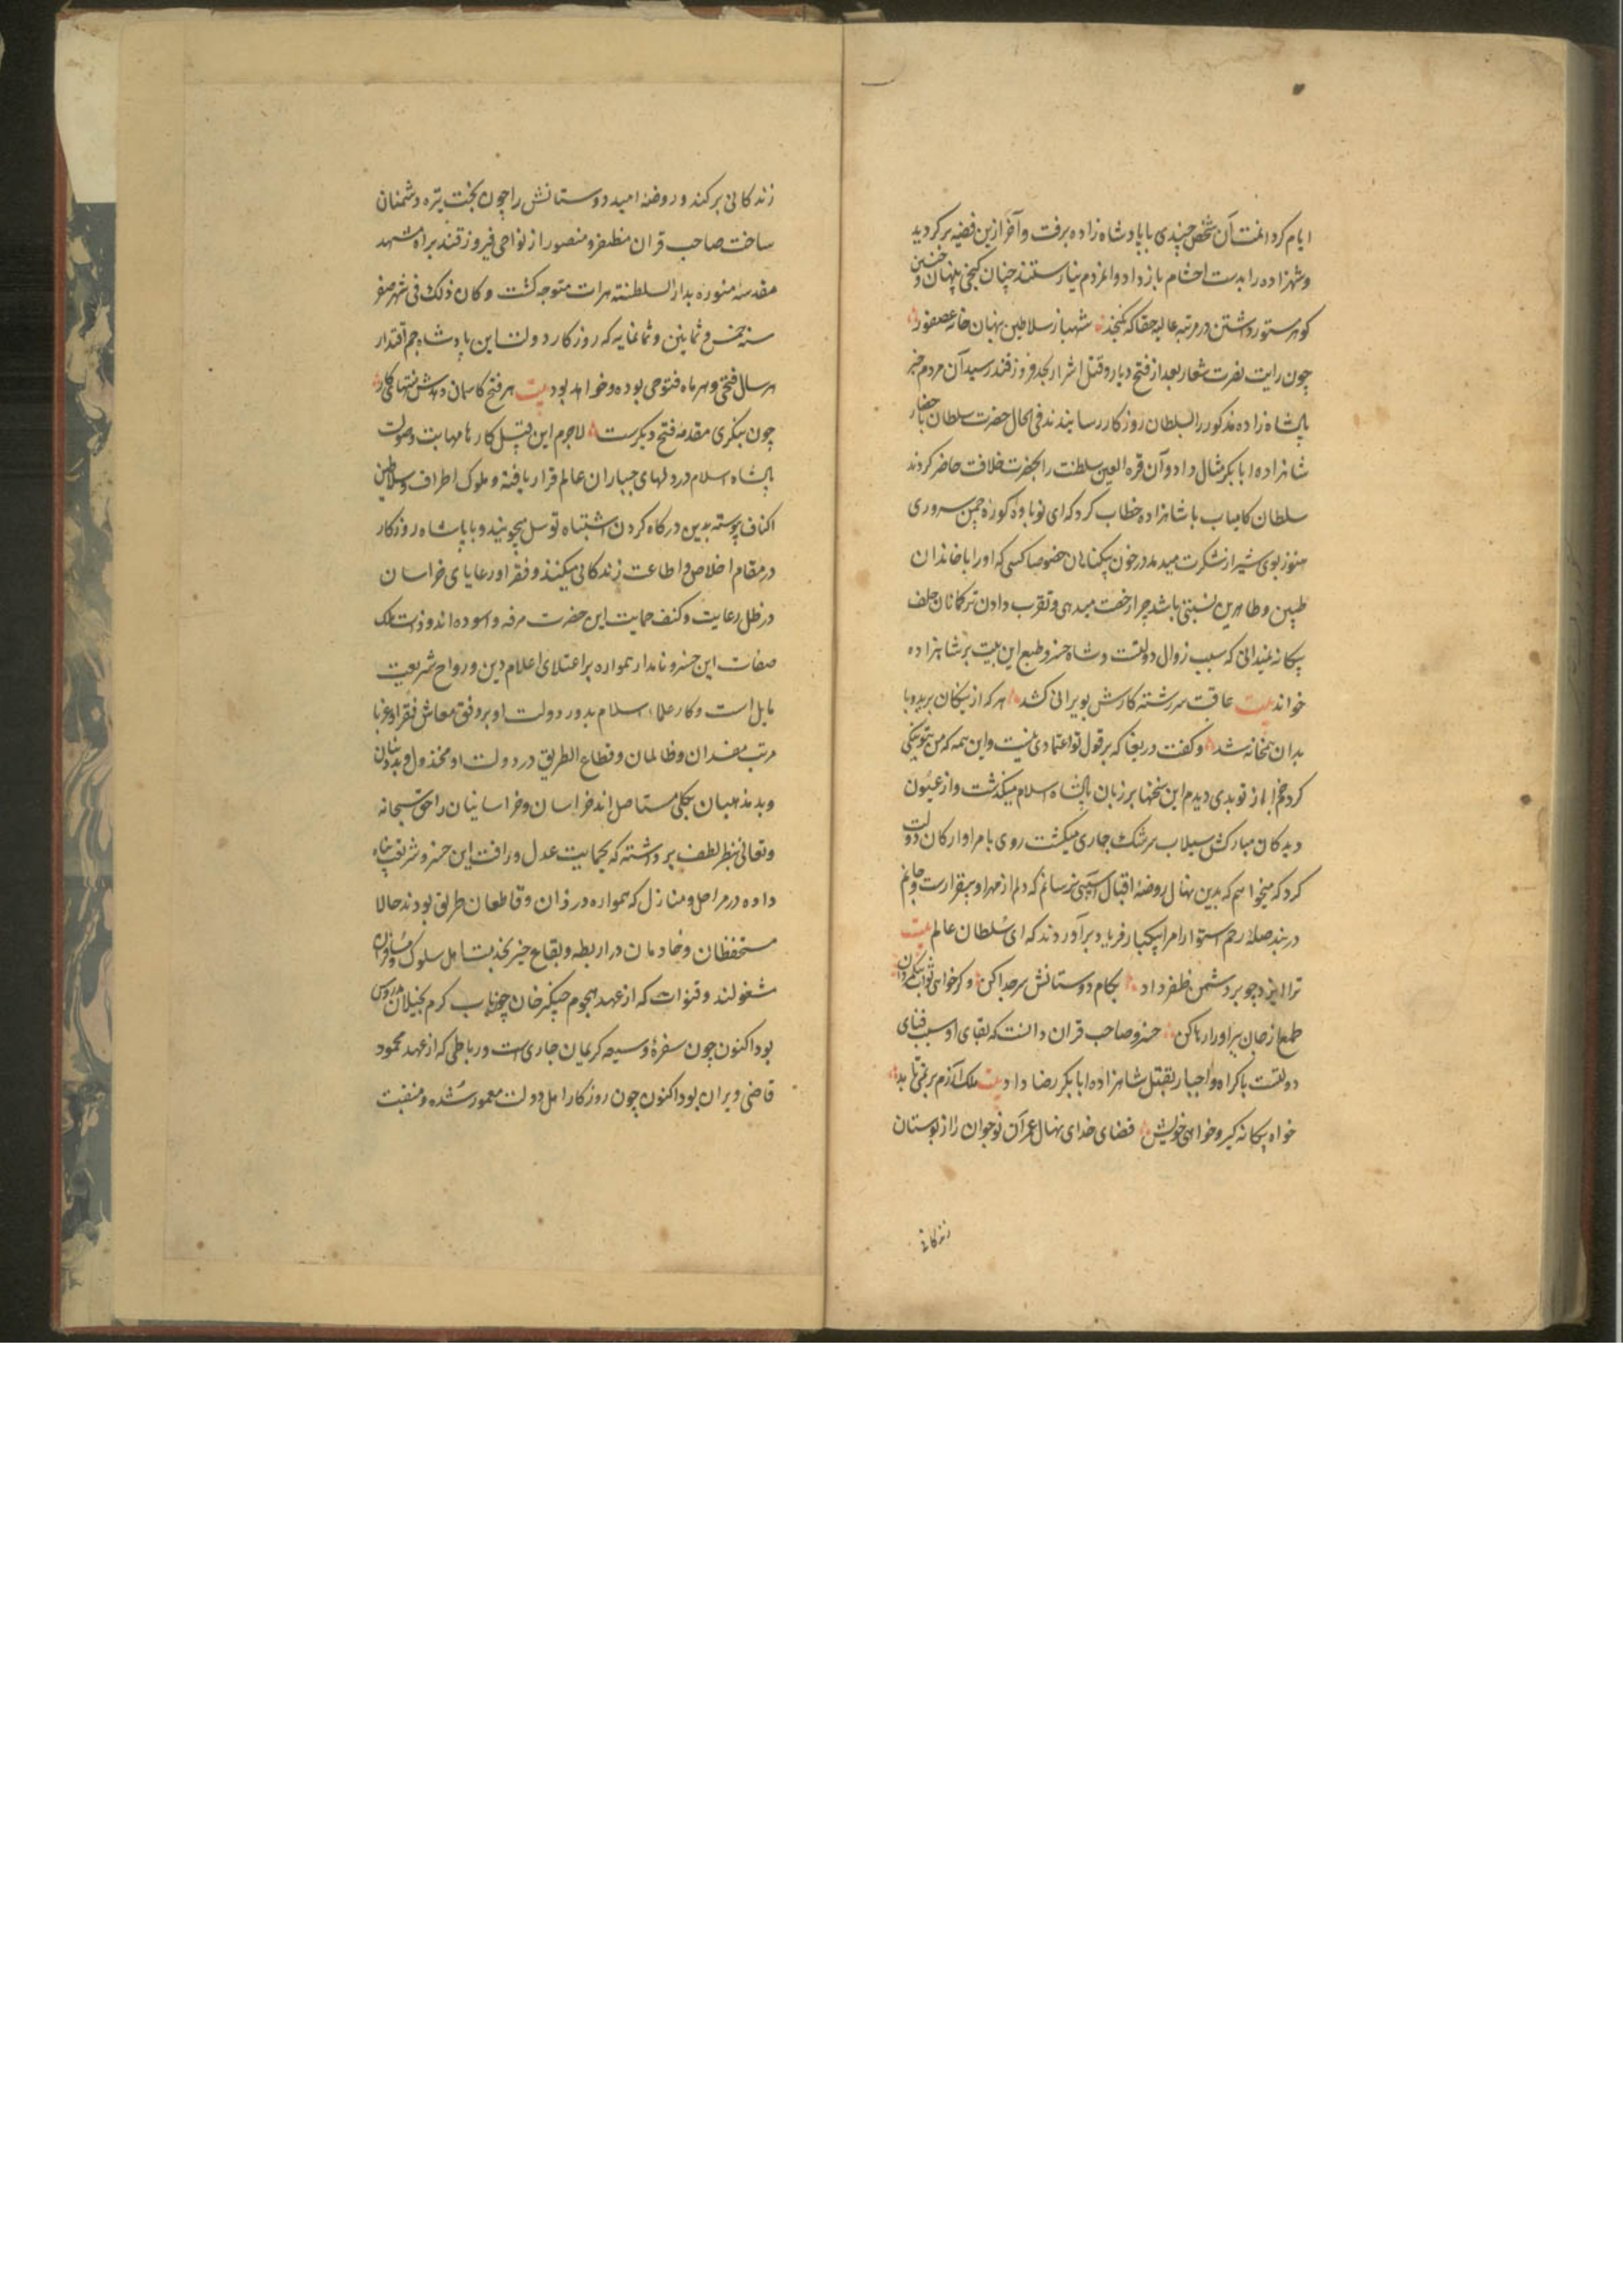 ایام کرد القت آن شخص چندی با پادشاه زاده برفت و آخر ازین قضیه برکردید
و شهزاده را بدست احشام باز داد و المردم نیارستند چنان کنجی پنهان و چنین
کوهر مستور داشتن در مرتبه عالیه حقا که نکنجد شهباز سلاطین بنهان خانه عصفور
چون رایت نصرت شعار بعد از فتح دیار و قتل اشرار بحد فیروز قند رسید آن مردم خبر
پادشاه زاده مذکور را بسلطان روزکار رسانیدند فی الحال حضرت سلطان باحضار
شاهزاده ابابکر مثال داد و آن قره العین سلطنت را بحضرت خلافت حاضر کردند
سلطان کامیاب با شاهزاده خطاب کرد که ای نوباوهٔ کوزه چمن سروری
هنوز بوی شیر از شکرت میدمد در خون بیکناهان خصوصا کسی که او را با خاندان
طیبین و طاهرین نسبتی باشد چرا رخصت میدهی و تقرب دادن ترکمانان جلف
بیکانه نمیدانی که سبب زوال دولتست و شاه خسرو طبع این بیت بر شاهزاده
خواند بیت عاقبت سررشته کارش بویرانی کشد هر که از نیکان برید و با
بدان همخانه شد و کفت دریغا که بر قول تو اعتمادی نیست و این همه که من بتو نیکی
کردم از تو بدی دیدم این سخنها بر زبان پادشاه اسلام میکذشت و از عیون
دیدکان مبارکش سیلاب سرشک جاری میکشت روی با امرا و ارکان دولت
کرد که میخواهم که بدین نهال روضهٔ اقبال آسیبی نرسانم که دلم از مهر او بیقرارست و جانم
در بند صلهٔ رحم استوار امرا بیکبار فریاد برآوردند که ای سلطان عالم بیت
ترا ایزد چو بر دشمن ظفر داد بکام دوستانش سر جدا کن و کر خواهی ثواب نیکمردان
طمع از جان ببر او را رها کن خسرو صاحب قران دانست که بقای او سبب فنای
دولتست باکراه و اجبار بقتل شاهزاده ابابکر رضا داد بیت ملک آزرم بر نمی تابد
خواه بیکانه کیر و خواهی خویش قضای خدای نهال عمر آن نوجوان را از بوستان
زندکانی
زندکانی برکند و روضهٔ امید دوستانش را چون بخت تیره دشمنان
ساخت صاحب قران مظفر و منصور از نواحی فیروز قند براه مشهد
مقدسه منوره بدار السلطنته هرات متوجه کشت و کان ذلک فی شهر صفر
سنه خمس و ثمانین و ثمانمایه که روزکار دولت این پادشاه جم اقتدار
هر سال فتحی و هر ماه فتوحی بوده و خواهد بود بیت هر فتح کاسمان دهدش منتهای کار
چون بنکری مقدمه فتح دیکرست لاجرم این قبیل کارها مهابت و صولت
پادشاه اسلام در دلهای جباران عالم قرار یافته و ملوک اطراف و سلاطین
اکناف پیوسته بدین درکاه کردون اشتباه توسل میجویند و با پادشاه روزکار
در مقام اخلاص و اطاعت زندکانی میکنند و فقرا و رعایای خراسان
در ظل رعایت و کنف حمایت این حضرت مرفه و اسوده اند و ذات ملک
صفات این خسرو نامدار همواره بر اعتلای اعلام دین و رواج شریعت
مایل است و کار علماء اسلام بدور دولت او بر وفق معاش فقرا و غربا
مرتب مفسدان و ظالمان و قطاع الطریق در دولت او مخذول و بددینان
و بدمذهبان بکلی مستاصل اند خراسان و خراسانیان را حق سبحانه
و تعالی بنظر لطف پرداشته که بحمایت عدل و رافت این خسرو شریعت پناه
داده در مراحل و منازل که همواره دزدان و قاطعان طریق بودند حالا
مستحفظان و خادمان در اربطه و بقاع خیر بخدمت اهل سلوک و مسافران
مشغولند و قنوات که از عهد هجوم چنکیز خان چون آب کرم بخیلان مدروس
بود اکنون چون سفرهٔ وسیعه کریمان جاری است و رباطی که از عهد محمود
قاضی ویران بود اکنون چون روزکار اهل دولت معمور شده و منقبت